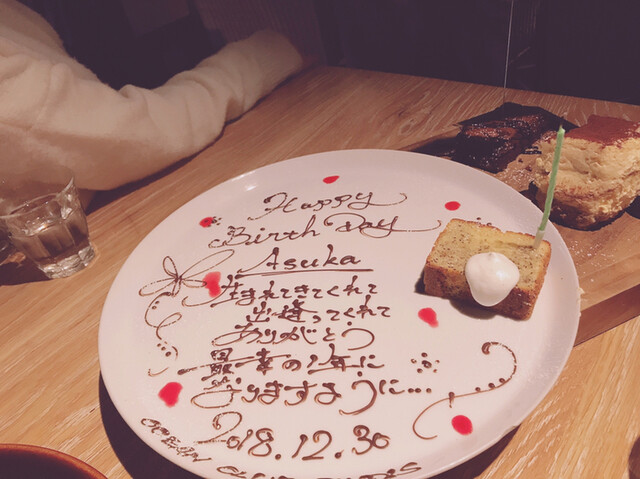 Happy
Birth Day
Asuka
生まれてきてくれて
出逢ってくれて
ありがとう
最幸の1年に
なりますように...
2018.12.30